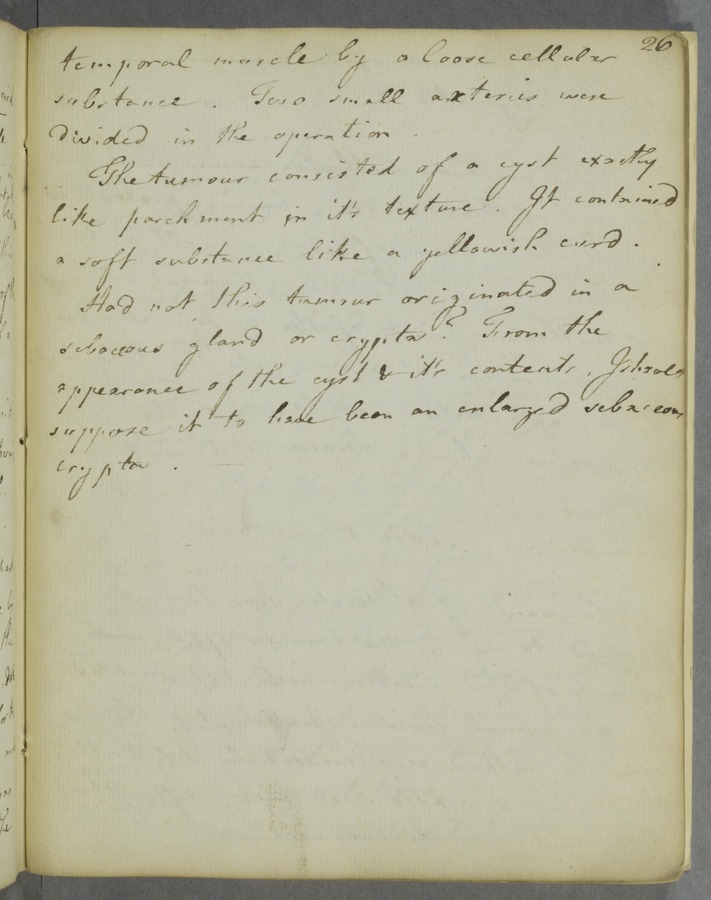 26
temporal muscle by a loose cellular
substance. Two small arteries were
divided in the operation.
The tumour consisted of a cyst exactly
like parchment in it's texture. It contained
a soft substance like a yellowish curd.
Had not this tumour originated in a
sebaceous gland or crypta? From the
appearance of the cyst & it's contents, I should
suppose it to have been an enlarged sebaceous
crypta. —